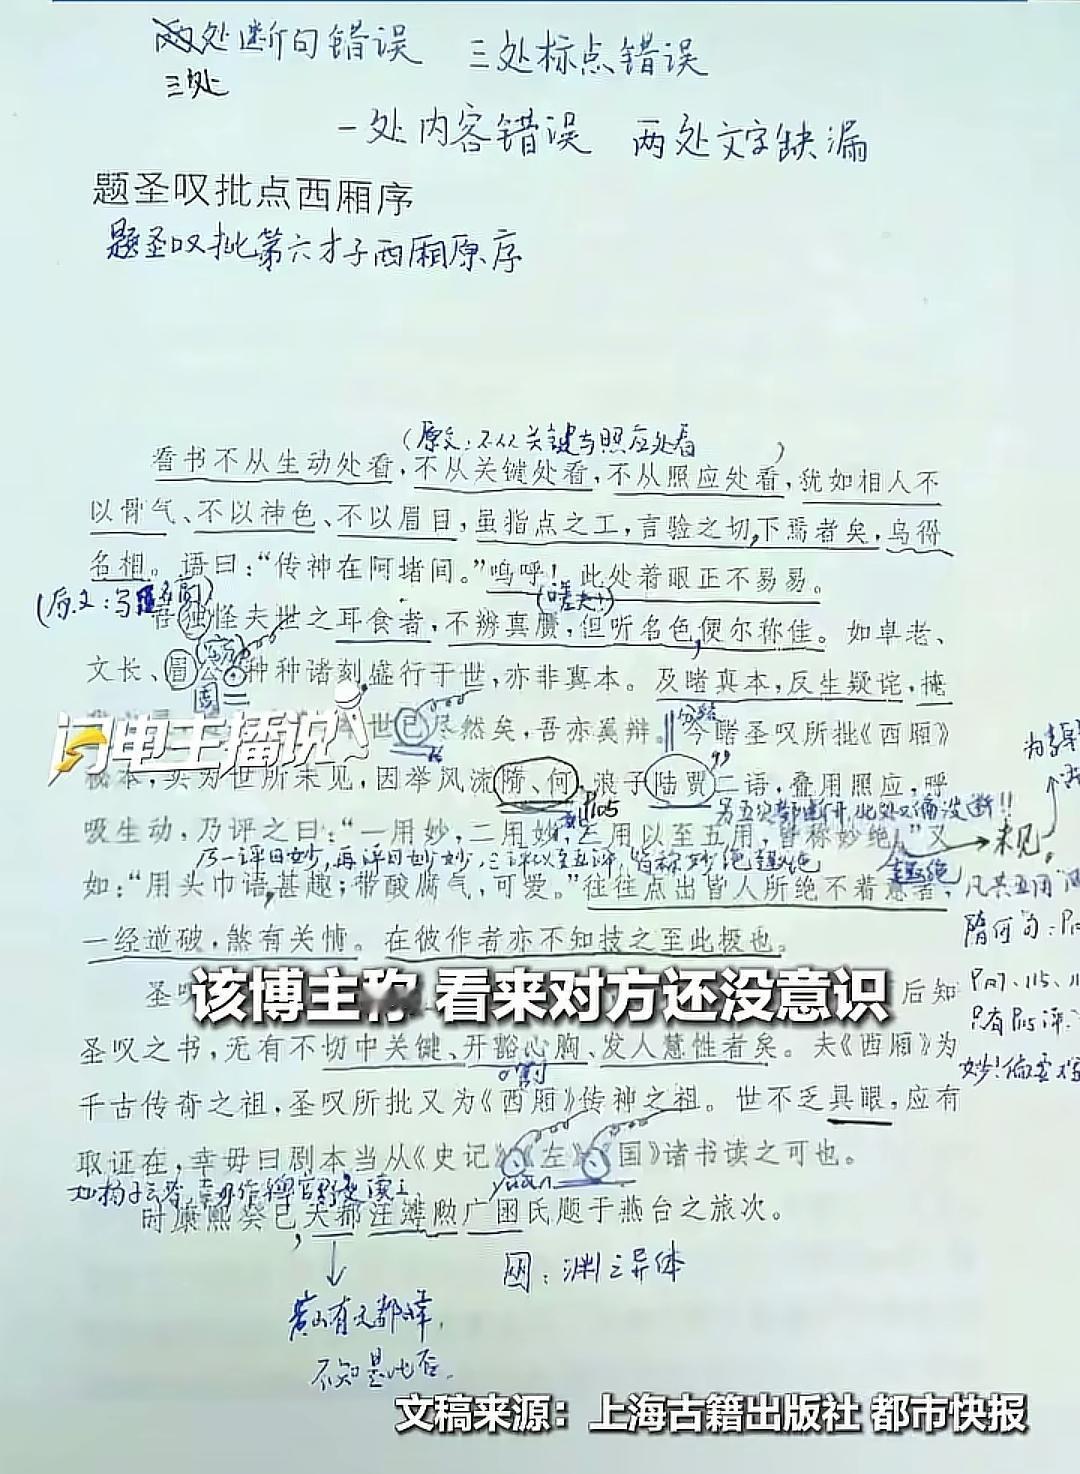 两处断句错误 三处标点错误
三处
一处内容错误 两处文字缺漏
题圣叹批点西厢序
题圣叹批第六才子西厢原序
(原文:不从关键与照应处看)
看书不从生动处看,不从关键处看,不从照应处看,犹如相人不
以骨气、不以神色、不以眉目,虽指点之工,言验之切,下焉者矣,乌得
名相。语曰:“传神在阿堵间。”呜呼!此处着眼正不易易。
(嗟夫!)
独怪夫世之耳食者,不辨真赝,但听名色,便尔称佳。如卓老、
文长、眉公种种诸刻盛行于世,亦非真本。及睹真本,反生疑诧,掩
世已尽然矣,吾亦奚辩。今睹圣叹所批《西厢》
闪电主播说
秘本,实为世所未见,因举风流隋、何,浪子陆贾二语,叠用照应,呼
P105
吸生动,乃评之曰:“一用妙,二用妙,三用以至五用,皆称妙绝。”又
未见。
乃一评曰妙,再评曰妙妙,三评以至五评,皆称妙绝趣绝
趣绝
如:“用头巾语,甚趣;带酸腐气,可爱。”往往点出皆人所绝不着意者,
一经道破,煞有关情。在彼作者亦不知技之至此极也。
隋何句:
该博主称 看来对方还没意识
圣
后知
圣叹之书,无有不切中关键、开豁心胸、发人慧性者矣。夫《西厢》为
千古传奇之祖,圣叹所批又为《西厢》传神之祖。世不乏具眼,应有
取证在,幸毋曰剧本当从《史记》《左》《国》诸书读之可也。
yuān
时康熙癸巳天都汪溥勲广囦氏题于燕台之旅次。
囦:渊之异体
黄山有天都峰,
不知是此否。
文稿来源:上海古籍出版社 都市快报